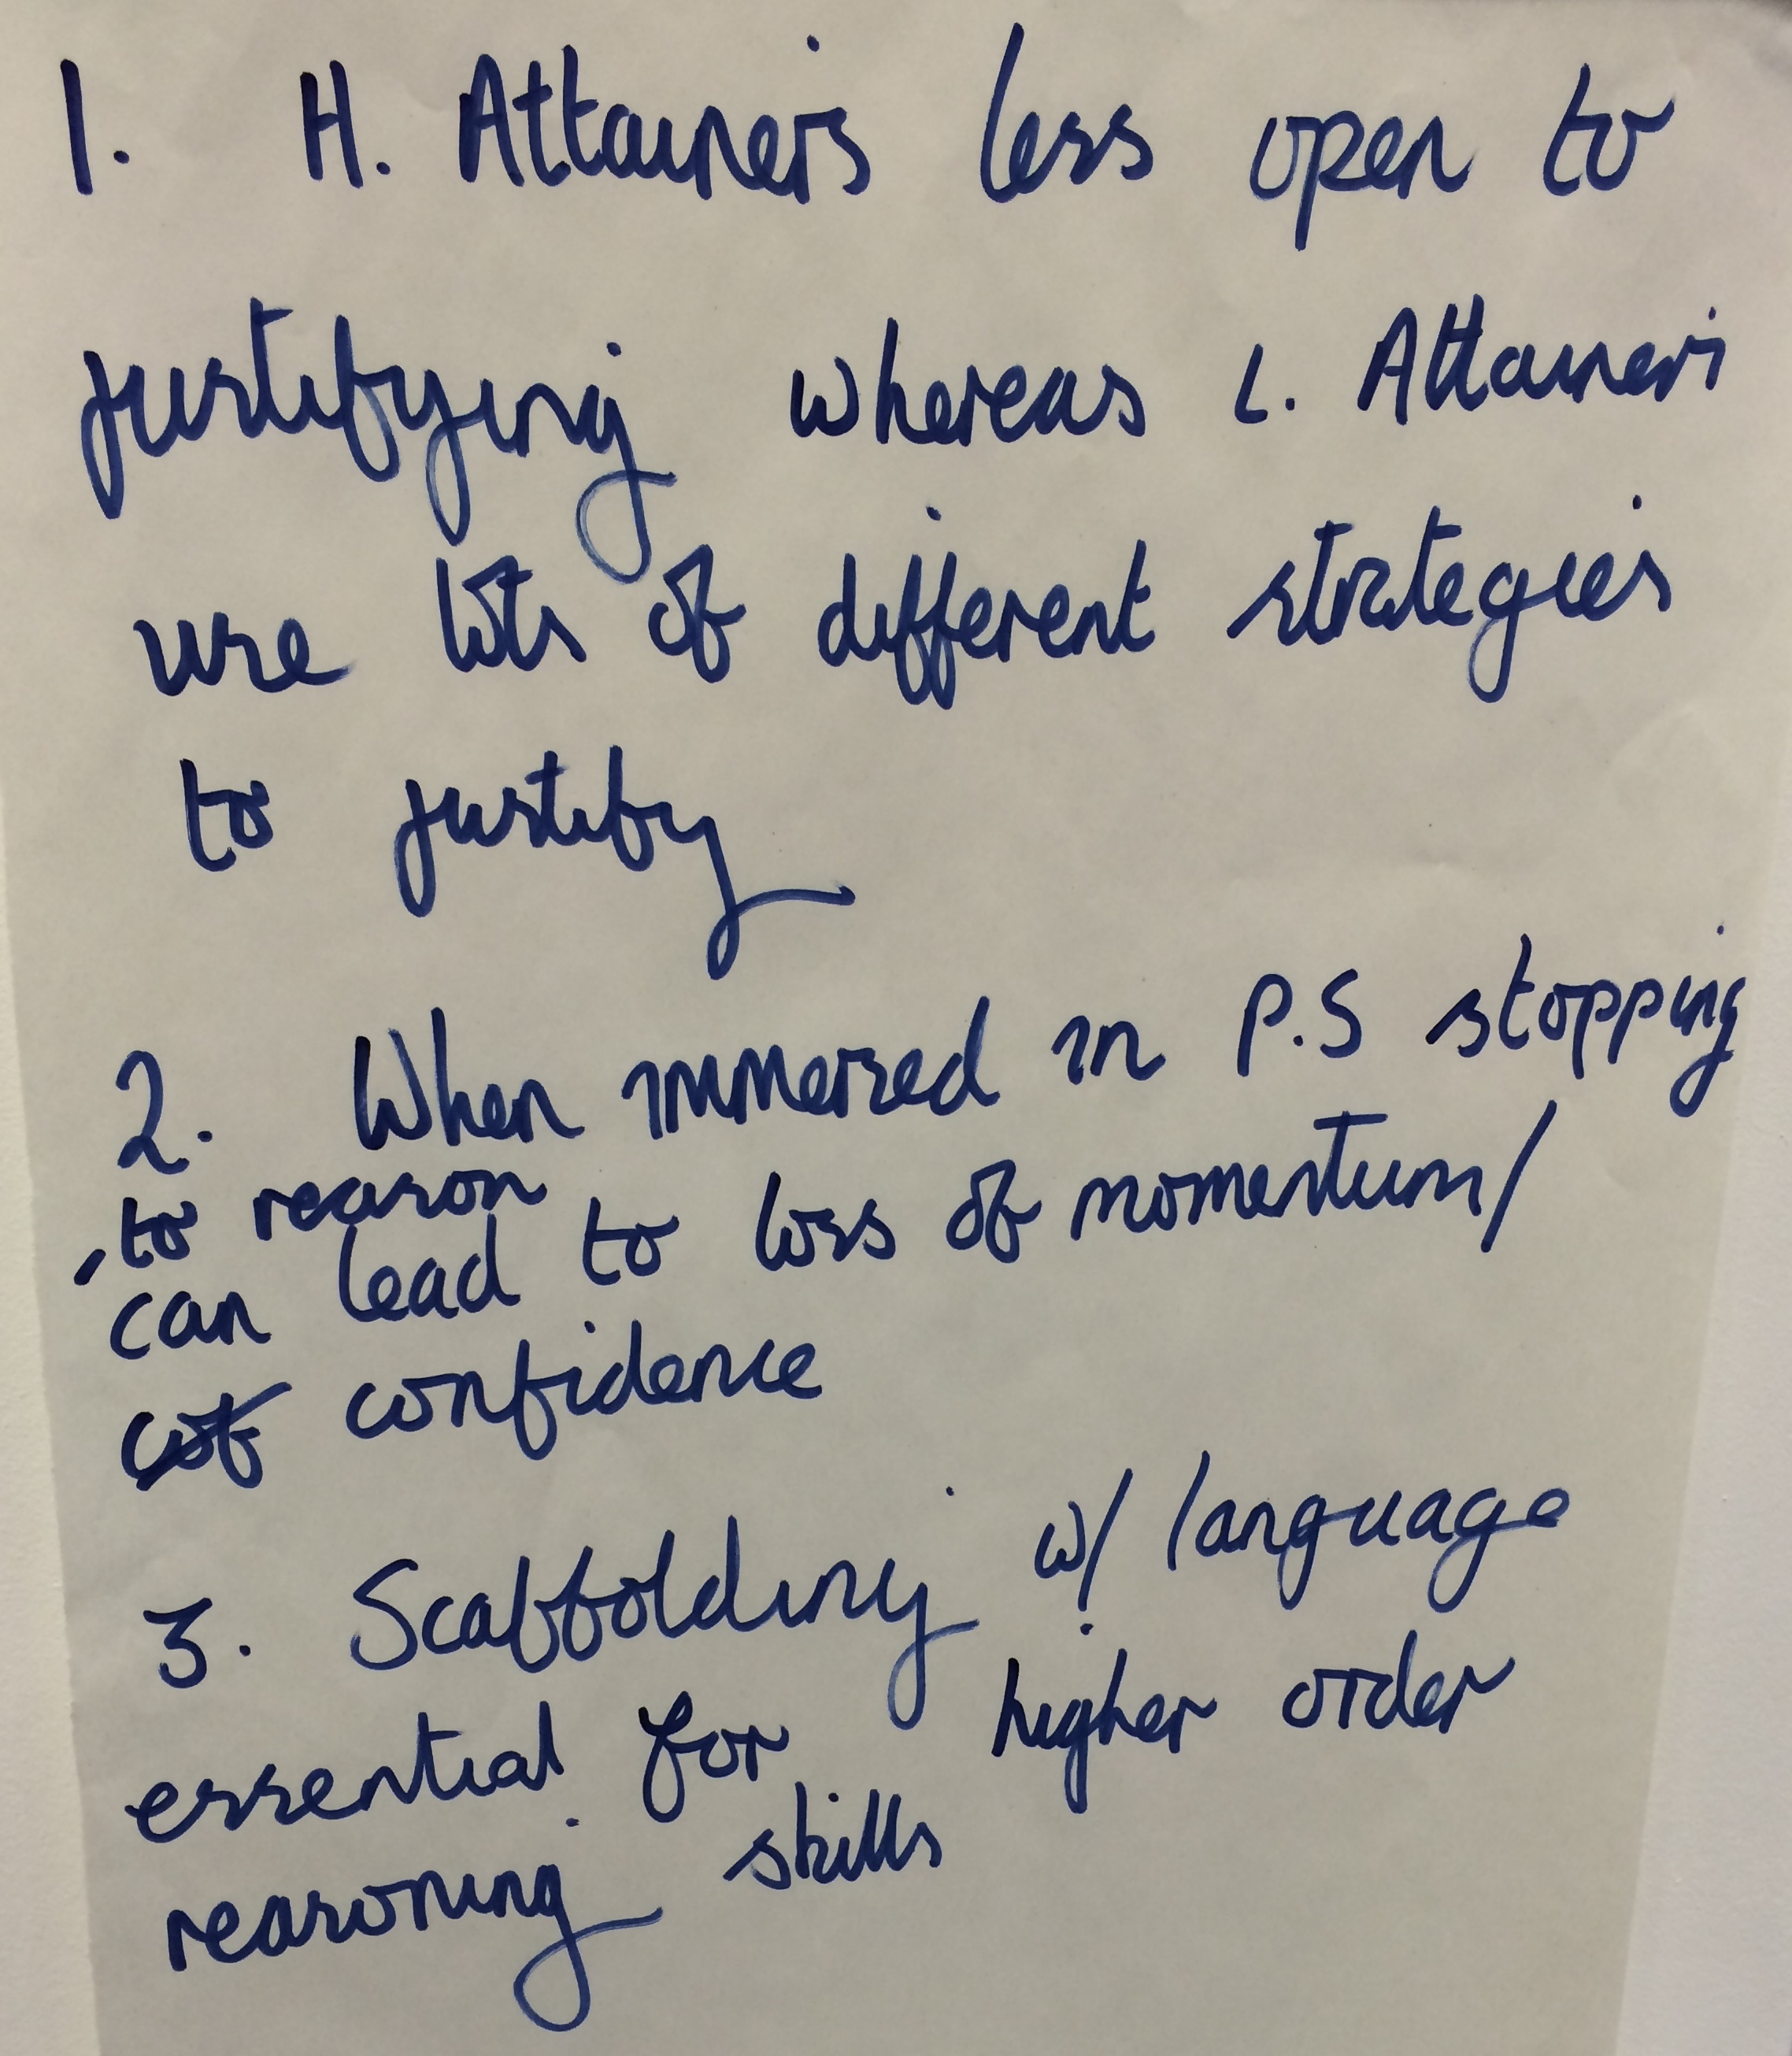 1. H. Attainers less open to
justifying whereas L. Attainers
use lots of different strategies
to justify
2. When immersed in P.S stopping
to reason
can lead to loss of momentum/
confidence
3. Scaffolding w/ language
essential for higher order
reasoning skills